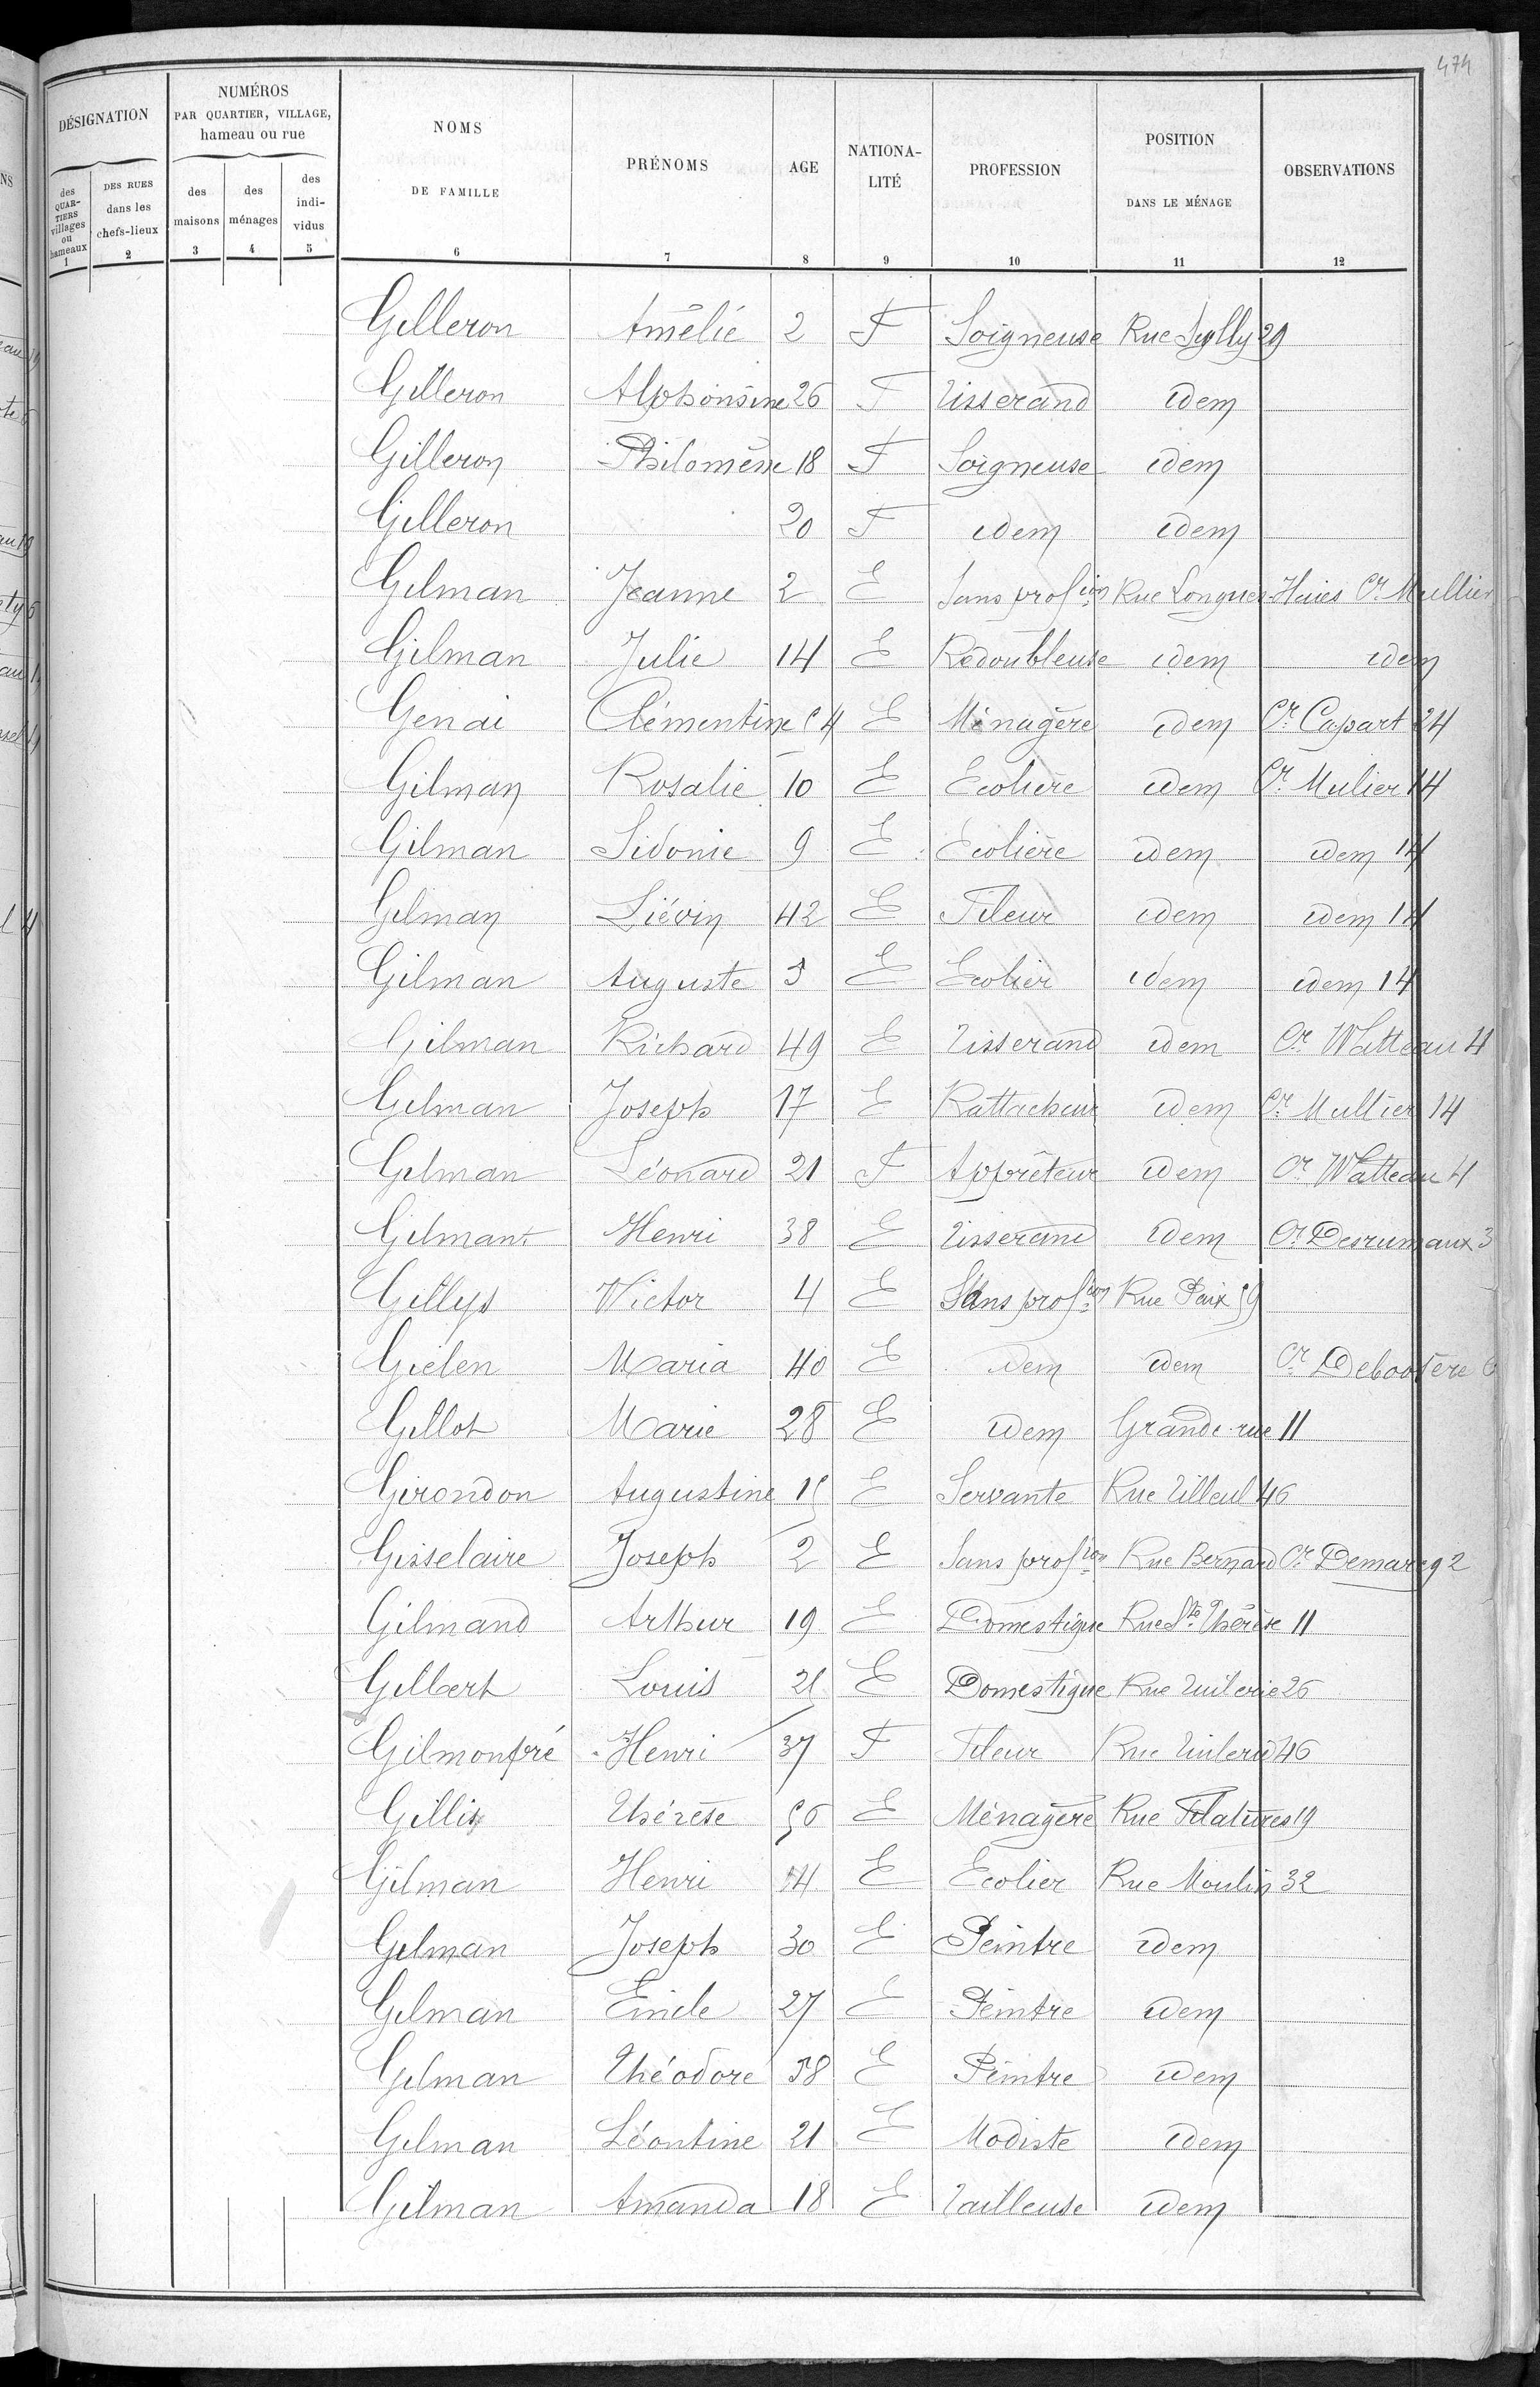 474
DÉSIGNATION
NUMÉROS
PAR QUARTIER, VILLAGE,
hameau ou rue
NOMS
DE FAMILLE
PRÉNOMS
AGE
NATIONA-
LITÉ
PROFESSION
POSITION
DANS LE MÉNAGE
OBSERVATIONS
des
QUAR-
TIERS
villages
ou
hameaux
DES RUES
dans les
chefs-lieux
des
maisons
des
ménages
des
indi-
vidus
1 2 3 4 5 6 7 8 9 10 11 12
Gilleron Amélie 2 F Soigneuse Rue Sully 29
Gilleron Alphonsine 26 F Tisserand idem
Gilleron Philomène 18 F Soigneuse idem
Gilleron 20 F idem idem
Gilman Jeanne 2 E Sans profion Rue Longues Haies Cr. Mullier
Gilman Julie 14 E Redoubleuse idem idem
Genai Clémentine 54 E Ménagère idem Cr. Capart 24
Gilman Rosalie 10 E Ecolière idem Cr. Mulier 14
Gilman Sidonie 9 E Ecolière idem idem 14
Gilman Liévin 42 E Fileur idem idem 14
Gilman Auguste 5 E Ecolier idem idem 14
Gilman Richard 49 E Tisserand idem Cr. Watteau 4
Gilman Joseph 17 E Rattacheur idem Cr. Mullier 14
Gilman Léonard 21 F Apprêteur idem Cr. Watteau 4
Gilmant Henri 38 E Tisserand idem Cr. Desrumaux 3
Gillys Victor 4 E Sans profion Rue Paix 59
Gielen Maria 40 E idem idem Cr. Debootère 6
Gillot Marie 28 E idem Grande rue 11
Girondon Augustine 15 E Servante Rue Tilleul 46
Gisselaire Joseph 2 E Sans profion Rue Bernard Cr. Demarcq 2
Gilmand Arthur 19 E Domestique Rue Ste Thérèse 11
Gilbert Louis 25 E Domestique Rue Tuilerie 26
Gilmonpré Henri 37 F Fileur Rue Tuilerie 46
Gillis Thérèse 56 E Ménagère Rue Filatures 19
Gilman Henri 14 E Ecolier Rue Moulin 32
Gilman Joseph 30 E Peintre idem
Gilman Emile 27 E Peintre idem
Gilman Théodore 58 E Peintre idem
Gilman Léontine 21 E Modiste idem
Gilman Amanda 18 E Tailleuse idem